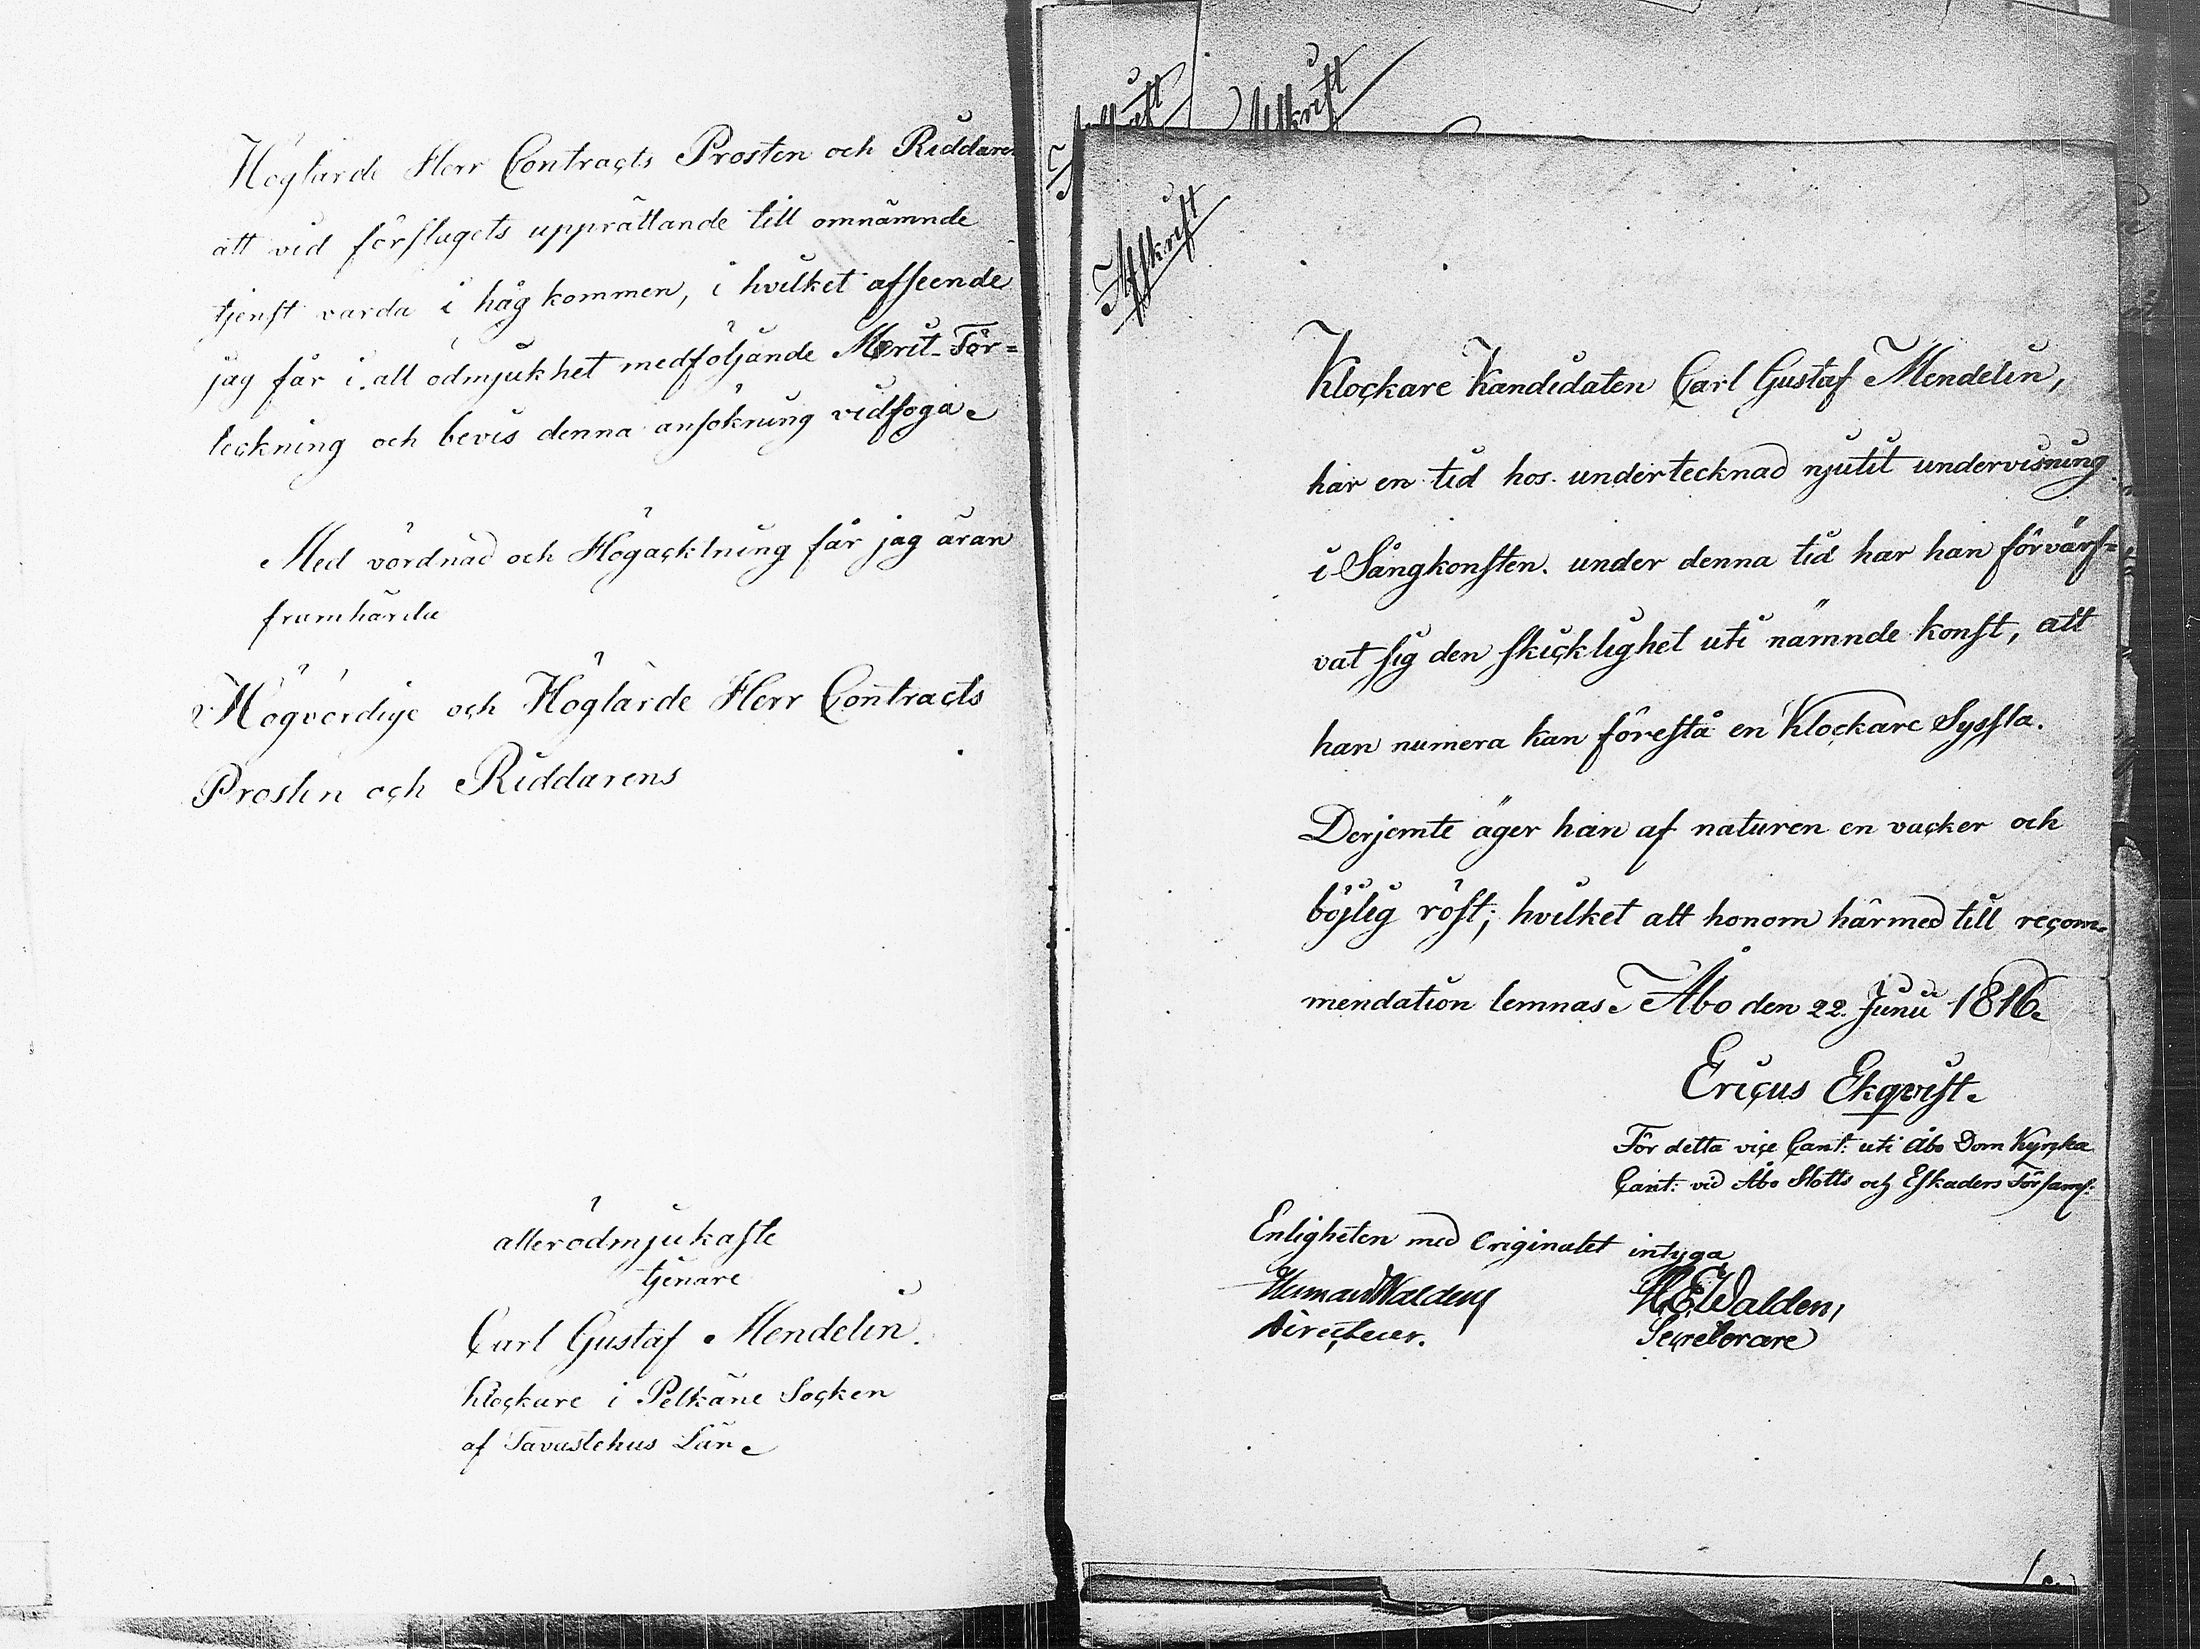 Höglärde Herr Contracts Prosten och Riddaren
att vid förslagets upprättande till omnämnde
tjenst varda i håg kommen, i hvilket afseende
jag får i all ödmjukhet medföljande Merit-För=
teckning och bevis denna ansökning vidfoga.
Med vördnad och Högacktning får jag äran
framhärda
Högvördige och Höglärde Herr Contracts
Prosten och Riddarens
allerödmjukaste
tjenare
Carl Gustaf Mendelin.
Klockare i Pelkäne Socken
af Tavastehus Län.
Afskrift
Afskrift
Klockare Kandidaten Carl Gustaf Mendelin,
har en tid hos undertecknad njutit undervisning
i Sångkonsten. under denna tid har han förvärf=
vat sig den skicklighet uti nämnde konst, att
han numera kan förestå en Klockare Syssla.
Derjemte äger han af naturen en vacker och
böjlig röst; hvilket att honom härmed till recom-
mendation lemnas. Åbo den 22. Junii 1816.
Ericus Ekqvist.
För detta vice Cant: uti Åbo Dom Kyrka
Cant: vid Åbo Slotts och Eskaders Församl:
Enligheten med Originalet intyga
Herman Walden
Directeur.
H E Walden,
Secreterare